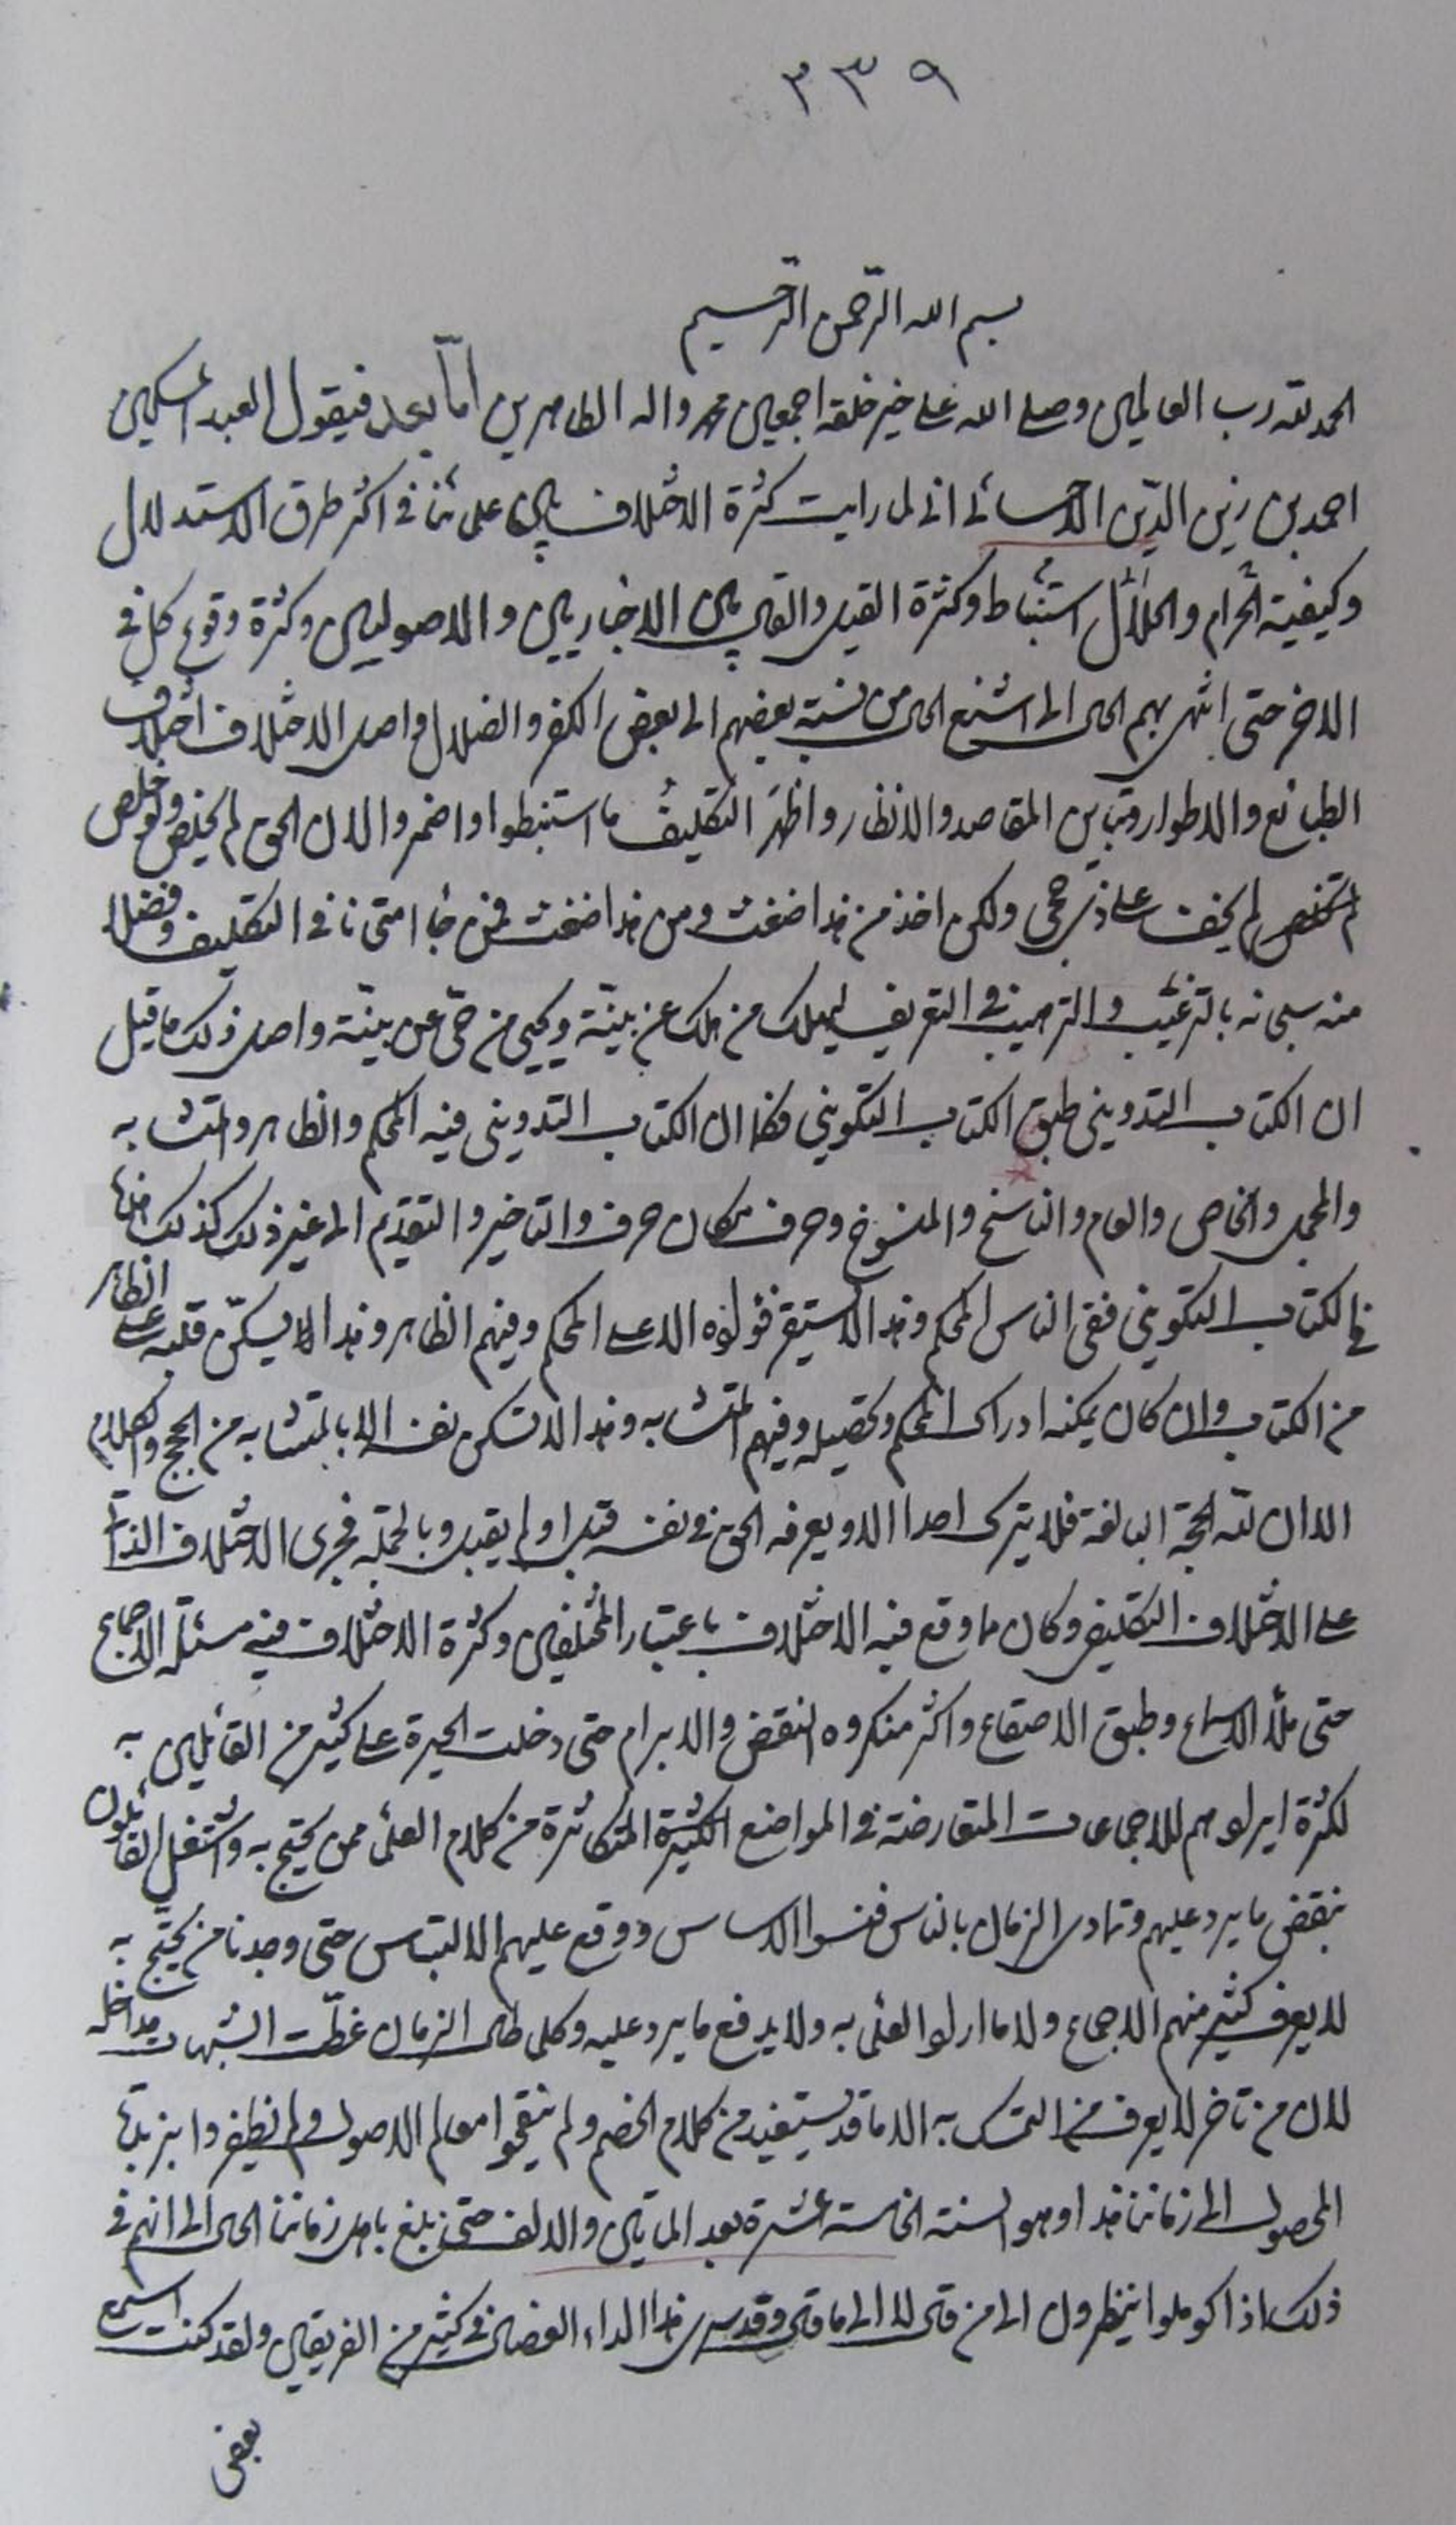 ٣٣٩
بسم الله الرحمن الرحيم
الحمد لله رب العالمين وصلى الله على خير خلقه اجمعين محمد واله الطاهرين امّا بعد فيقول العبد المسكين
احمد بن زين الدّين الاحسائي اني لما رايت كثرة الاختلاف بين علمائنا في اكثر طرق الاستدلال
وكيفية الحرام والحلال استنباط وكثرة القيل والقال بين الاخباريين والاصوليين وكثرة وقوع كل في
الاخر حتى انتهى بهم الحال الى اشنع الحال من نسبة بعضهم الى بعض الكفر والضلال واصل الاختلاف اختلاف
الطبائع والاطوار وتباين المقاصد والانظار واظهر التكليف ما استبطنوا واضمروا لان الحق لم يخلص ولو خلص
لم يخف على ذي حجى ولكن اخذ من هذا ضغث ومن هذا ضغث فمزجا امتحانا في التكليف وفضلا
منه سبحانه بالترغيب والترهيب في التعريف ليهلك من هلك عن بينّة ويحيى من حيّ عن بينّة واصل ذلك ما قيل
ان الكتاب التدويني طبق الكتاب التكويني فكما ان الكتاب التدويني فيه المحكم والظاهر والمتشابه
والمجمل والخاص والعام والناسخ والمنسوخ وحرف مكان حرف والتاخير والتقديم الى غير ذلك كذلك
في الكتاب التكويني ففي الناس المحكم وهذا لا يستقر فؤاده الا على المحكم وفيهم الظاهر وهذا لا يسكن قلبه على الظاهر
من الكتاب وان كان يمكنه ادراك المحكم وتحصيله وفيهم المتشابه وهذا لا تسكن نفسه الا بالمتشابه من الحجج والكلام
الا ان لله الحجة البالغة فلا يترك احدا الا ويعرفه الحق في نفسه قبل او لم يقبل وبالجملة فجرى الاختلاف الذاتي
على الاختلاف التكليفي وكان ما وقع فيه الاختلاف باعتبار المختلفين وكثرة الاختلاف فيه مسئلة الاجماع
حتى ملأ الاسماع وطبق الاصقاع واكثر منكروه النقض والابرام حتى دخلت الحيرة على كثير من القائلين به
لكثرة ايرادهم للاجماعات المتعارضة في المواضع الكثيرة المتكاثرة من كلام العلماء ممن يحتج به واشتغل القائلون
بنقض ما يرد عليهم وتمادى الزمان بالناس فنسوا الاساس ووقع عليهم الالتباس حتى وجدنا من يحتج به
لا يعرف كثير منهم الاجماع ولا ما ارادوا العلماء به ولا يدفع ما يرد عليه وكلما طال الزمان غطّت الشبهات مداخله
لان من تاخر لا يعرف من التمسك به الا ما قد يستفيد من كلام الخصم ولم ينقحوا معالم الاصول ولم يظفروا بزبدة
المحصول الى زماننا هذا وهو السنة الخامسة عشرة بعد المأتين والالف حتى بلغ باهل زماننا الحال الى انهم في
ذلك اذا كوملوا ينظرون الى من قال لا الى ما قال وقد سرى هذا الداء العضال في كثير من الفريقين ولقد كنت اسمع
بعض